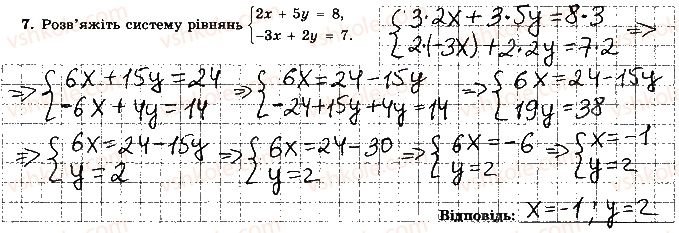 7. Розв'яжіть систему рівнянь { 2x + 5y = 8, -3x + 2y = 7. { 3·2x + 3·5y = 8·3 2·(-3x) + 2·2y = 7·2 =>
=> { 6x + 15y = 24 -6x + 4y = 14 => { 6x = 24 - 15y -24 + 15y + 4y = 14 => { 6x = 24 - 15y 19y = 38
=> { 6x = 24 - 15y y = 2 => { 6x = 24 - 30 y = 2 => { 6x = -6 y = 2 => { x = -1 y = 2
Відповідь: x = -1; y = 2